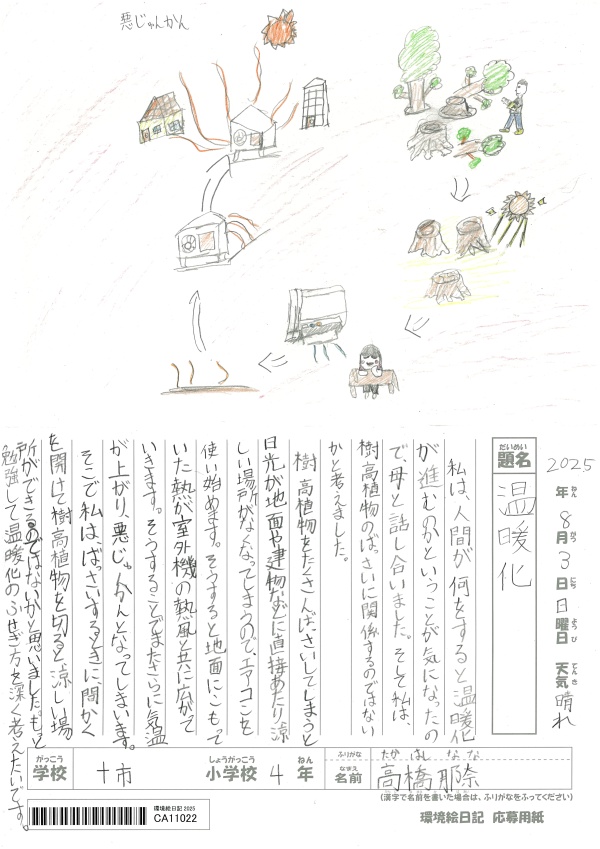 悪じゅんかん
2025年ねん 8月がつ 3日にち 日曜日ようび 天気てんき 晴れ
だいめい
題名
温暖化
私は、人間が何をすると温暖化
が進むのかということが気になったの
で、母と話し合いました。そして私は、
樹高植物のばっさいに関係するのではない
かと考えました。
樹高植物をたくさんばっさいしてしまうと
日光が地面や建物などに直接あたり涼
しい場所がなくなってしまうので、エアコンを
使い始めます。そうすると地面にこもって
いた熱が室外機の熱風と共に広がって
いきます。そうすることでまたさらに気温
が上がり、悪じゅんかんとなってしまいます。
そこで私は、ばっさいするときに、間かく
を開けて樹高植物を切ると涼しい場
所ができるのではないかと思いました。もっと
勉強して温暖化のふせぎ方を深く考えたいです。
がっこう
学校
十市
しょうがっこう
小学校
4
ねん
年
ふりがな
たかはし なな
なまえ
名前
高橋 那奈
(漢字で名前を書いた場合は、ふりがなをふってください)
環境絵日記 2025
CA11022
環境絵日記 応募用紙